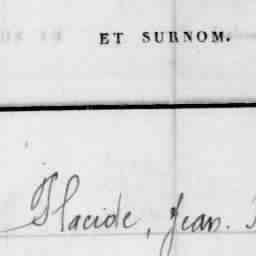 ET SURNOM.
Placide, Jean.